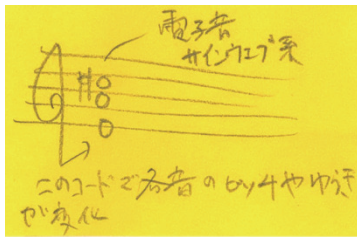 電子音
サインウエブ系
このコードで各音のピッチやゆらぎ
が変化